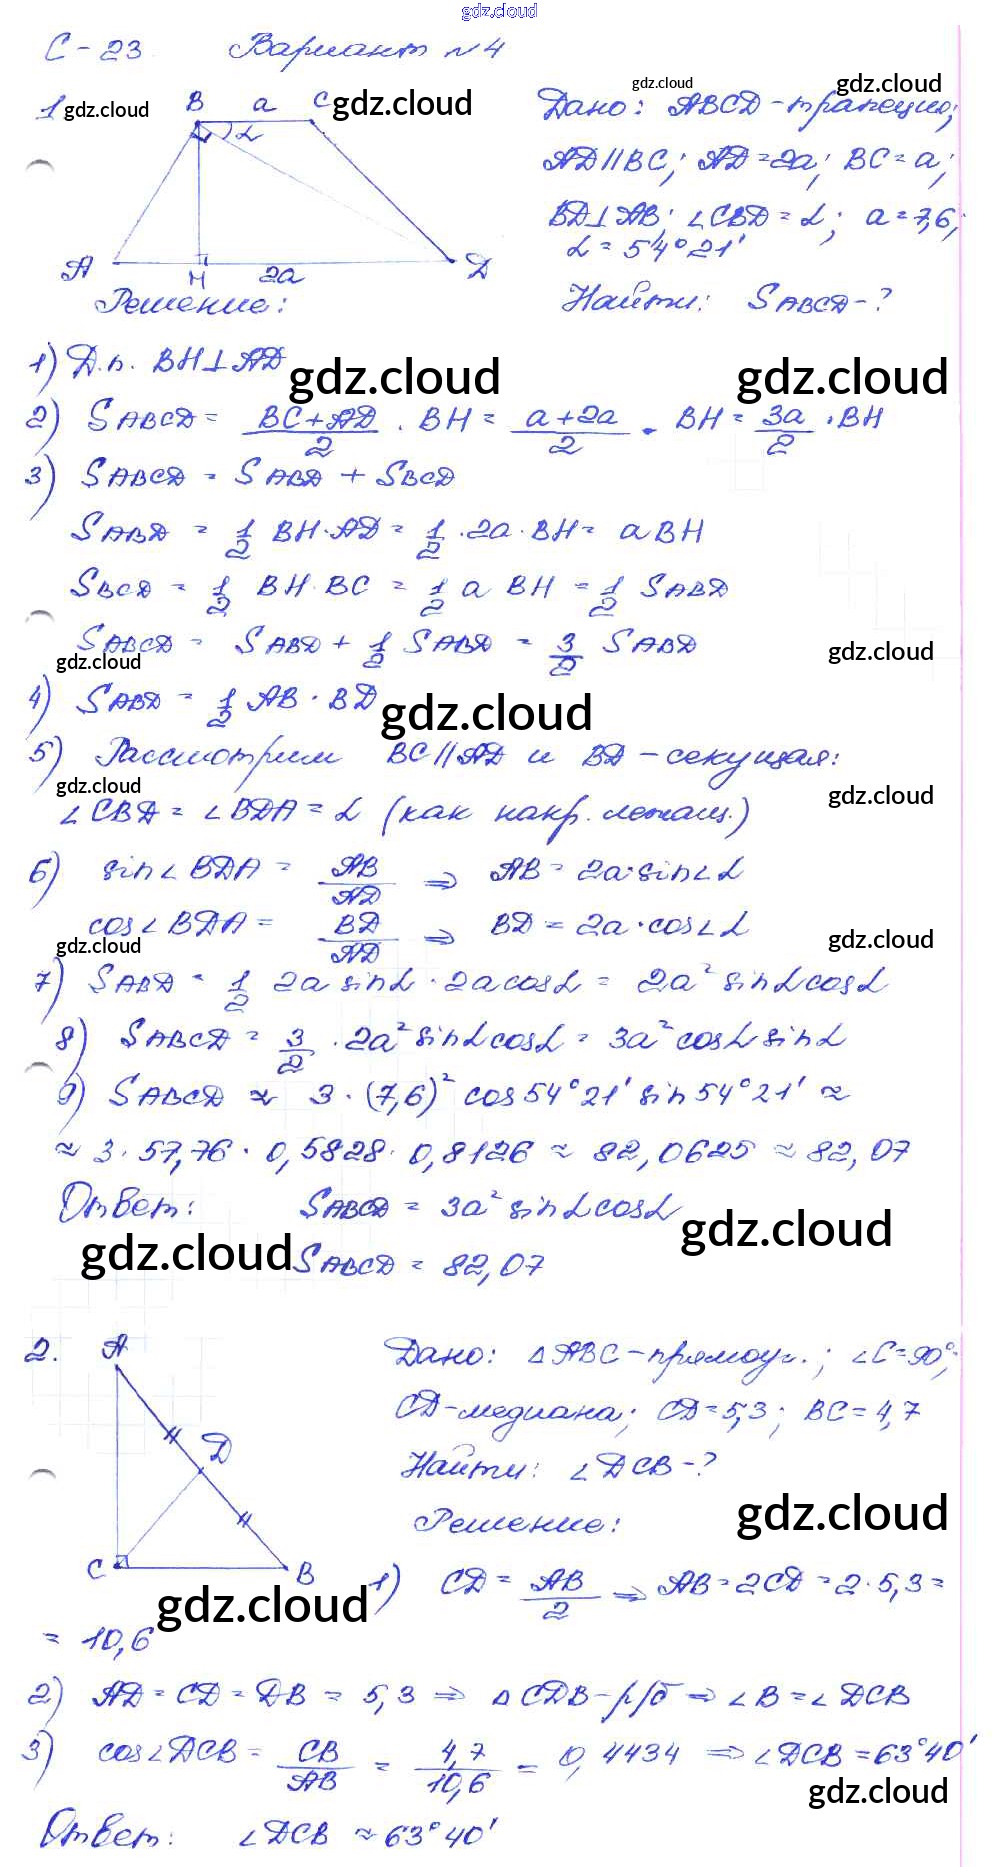 gdz.cloud
С-23 Вариант №4
1 gdz.cloud
B a C gdz.cloud
α
A H 2a D
gdz.cloud gdz.cloud
Дано: ABCD - трапеция;
AD ∥ BC; AD = 2a; BC = a;
BD ⊥ AB; ∠CBD = α; a = 7,6;
α = 54°21'
Найти: S ABCD - ?
Решение:
1) Д.п. BH ⊥ AD
gdz.cloud gdz.cloud
2) S ABCD = (BC + AD)/2 · BH = (a + 2a)/2 · BH = 3a/2 · BH
3) S ABCD = S ABD + S BCD
S ABD = 1/2 BH · AD = 1/2 · 2a · BH = a BH
S BCD = 1/2 BH · BC = 1/2 a BH = 1/2 S ABD
S ABCD = S ABD + 1/2 S ABD = 3/2 S ABD
gdz.cloud gdz.cloud
4) S ABD = 1/2 AB · BD
gdz.cloud
5) Рассмотрим BC ∥ AD и BD - секущая:
gdz.cloud gdz.cloud
∠CBD = ∠BDA = α (как накр. лежащ.)
6) sin∠BDA = AB/AD ⇒ AB = 2a · sin∠α
cos∠BDA = BD/AD ⇒ BD = 2a · cos∠α
gdz.cloud gdz.cloud
7) S ABD = 1/2 2a sinα · 2a cosα = 2a² sinα cosα
8) S ABCD = 3/2 · 2a² sinα cosα = 3a² cosα sinα
9) S ABCD ≈ 3 · (7,6)² cos54°21' sin54°21' ≈
≈ 3 · 57,76 · 0,5828 · 0,8126 ≈ 82,0625 ≈ 82,07
Ответ: S ABCD = 3a² sinα cosα
gdz.cloud gdz.cloud
S ABCD = 82,07
2.
A
D
C B
Дано: △ABC - прямоуг.; ∠C = 90°;
CD - медиана; CD = 5,3; BC = 4,7
Найти: ∠DCB - ?
gdz.cloud
Решение:
gdz.cloud
1) CD = AB/2 ⇒ AB = 2CD = 2 · 5,3 =
= 10,6
2) AD = CD = DB = 5,3 ⇒ △CDB - р/б ⇒ ∠B = ∠DCB
3) cos∠DCB = CB/AB = 4,7/10,6 = 0,4434 ⇒ ∠DCB = 63°40'
gdz.cloud
Ответ: ∠DCB ≈ 63°40'